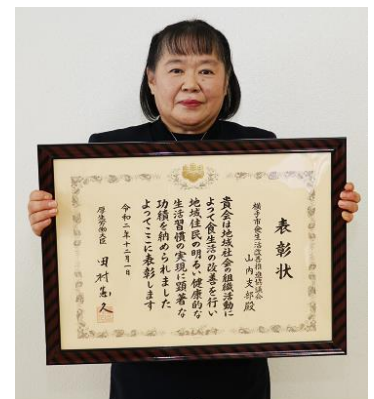 表彰状
横手市食生活改善推進協議会
山内支部殿
貴会は地域社会の組織活動に
よって食生活の改善を行い
地域住民の明るい健康的な
生活習慣の実現に顕著な
功績を納められました
よってここに表彰します
令和二年十二月一日
厚生労働大臣 田村憲久